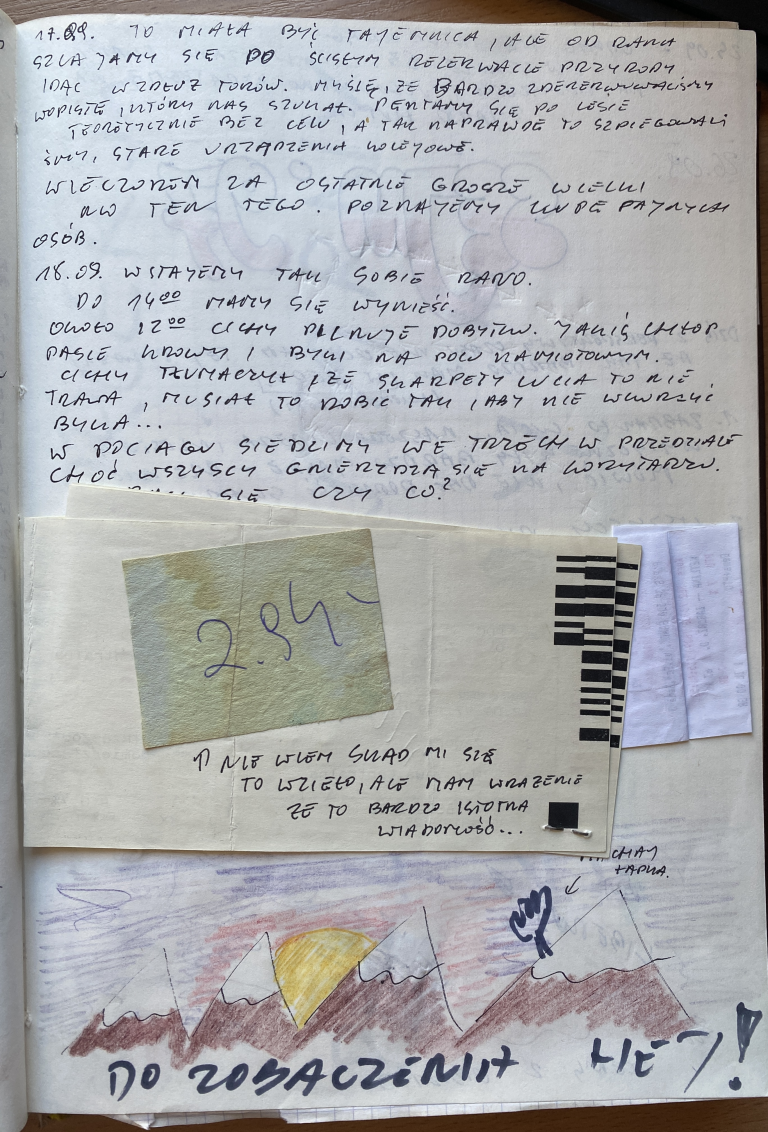 17.09. TO MIAŁA BYĆ TAJEMNICA, ALE OD RANA
SZLAJAMY SIĘ PO ŚCISŁYM REZERWACIE PRZYRODY
IDĄC WZDŁUŻ TORÓW. MYŚLĘ, ŻE BARDZO ZDEZERWOWALIŚMY
WOPISTĘ, KTÓRY NAS SZUKAŁ. PENTAMY SIĘ PO LESIE
TEORETYCZNIE BEZ CELU, A TAK NAPRAWDĘ TO SZPIEGOWALI
ŚMY, STARE URZĄDZENIA KOLEJOWE.
WIECZOREM ZA OSTATNIE GROSZE WIELKI
NO TEN TEGO. POZNAJEMY KUPĘ FAJNYCH
OSÓB.
18.09. WSTAJEMY TAK SOBIE RANO.
DO 14⁰⁰ MAMY SIĘ WYNIEŚĆ.
OKOŁO 12⁰⁰ CICHY PILNUJE DOBYTKU. JAKIŚ CHŁOP
PASIE KROWY I BYKI NA POLU NAMIOTOWYM.
CICHY TŁUMACZYŁ, ŻE SKARPETY LUCIA TO NIE
TRAWA, MUSIAŁ TO ROBIĆ TAK, ABY NIE WKURZYĆ
BYKA...
W POCIĄGU SIEDLIMY WE TRZECH W PRZEDZIALE
CHOĆ WSZYSCY GNIEŻDŻĄ SIĘ NA KORYTARZU.
SIĘ CZY CO?
2.94,-
↑ NIE WIEM SKĄD MI SIĘ
TO WZIĘŁO, ALE MAM WRAŻENIE
ŻE TO BARDZO ISTOTNA
WIADOMOŚĆ...
MACHAM
ŁAPKĄ.
DO ZOBACZENIA